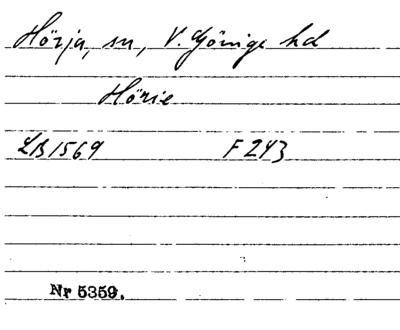 Hörja, sn, V. Göinge hd
Hörie
LB 1569 F 243
Nr 5359.